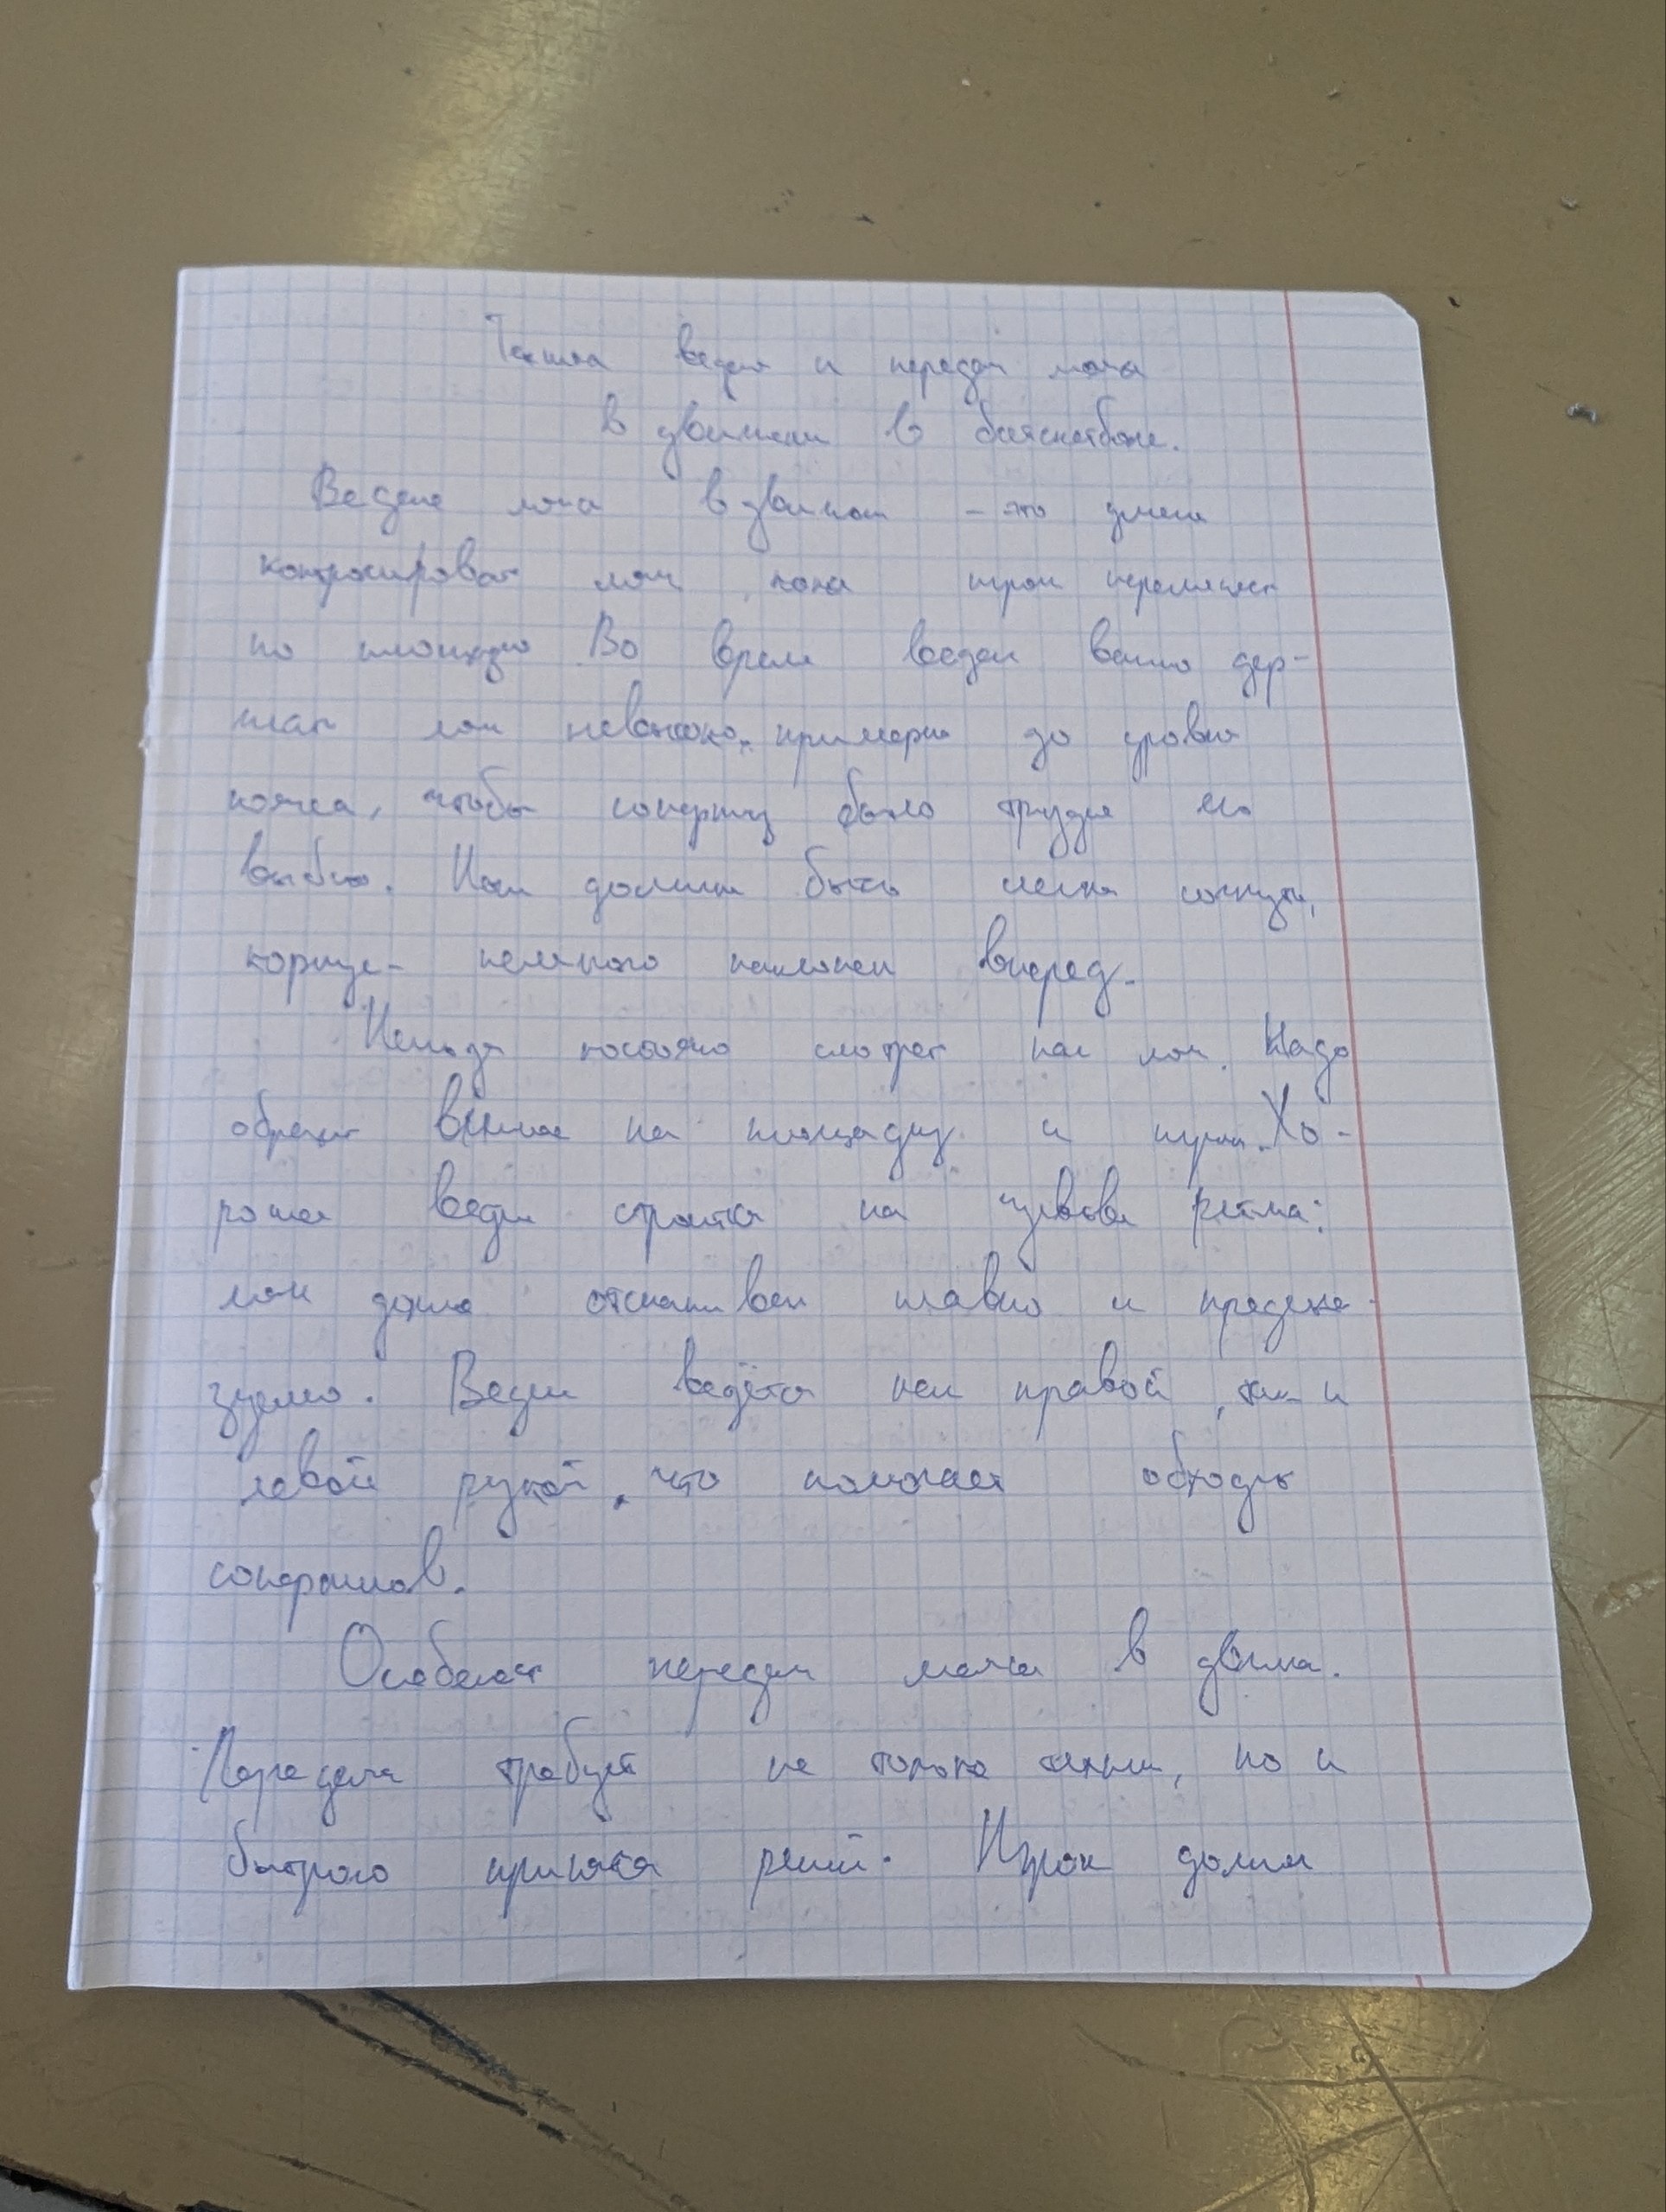 Техника ведения и передачи мяча
в движении в баскетболе.
Ведение мяча в движении – это умение
контролировать мяч, пока игрок перемещается
по площадке Во время ведения важно дер-
жать мяч невысоко, примерно до уровня
пояса, чтобы сопернику было труднее его
выбить. Ноги должны быть слегка согнуты,
корпус – немного наклонен вперед.
Нельзя постоянно смотреть на мяч. Надо
обращать внимание на площадку и игроков. Хо-
рошее ведение строится на чувстве ритма:
мяч должен отскакивать плавно и предска-
зуемо. Ведение ведётся как правой, так и
левой рукой, что помогает обходить
соперников.
Особенности передачи мяча в движении.
Передача требует не только техники, но и
быстрого принятия решений. Игрок должен